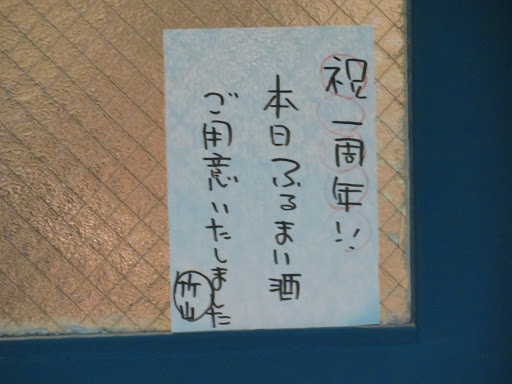 祝一周年!!
本日ふるまい酒
ご用意いたしました
竹山